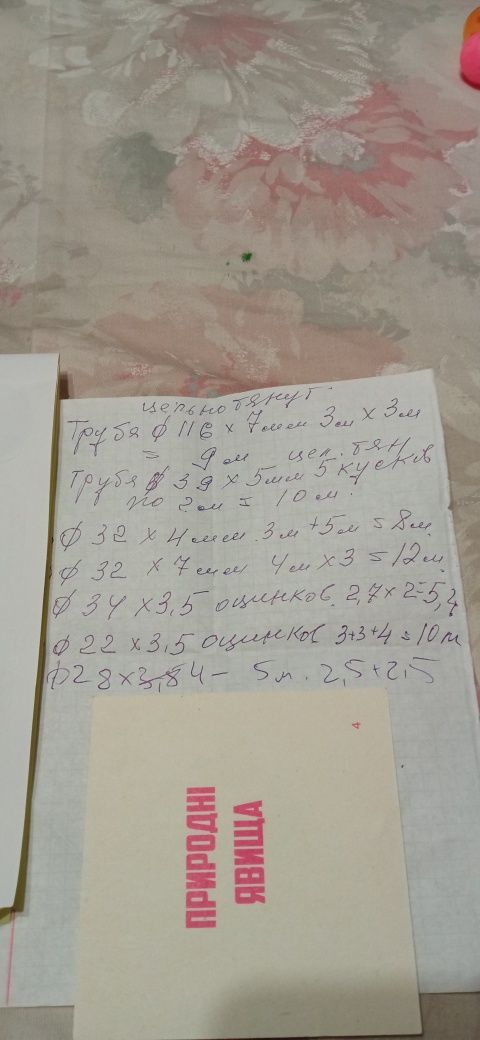 цельнотянут
Труба ϕ 116 x 7мм 3м x 3м
= 9м цел. тян
Труба ϕ 39 x 5мм 5 кусков
по 2м = 10м.
ϕ 32 x 4мм. 3м + 5м = 8м
ϕ 32 x 7мм 4м x 3 = 12м
ϕ 34 x 3,5 оцинков. 2,7 x 2 = 5,4
ϕ 22 x 3,5 оцинков 3+3+4 = 10м
ϕ 28 x 3,8 4 - 5м. 2,5+2,5
4
ПРИРОДНІ
ЯВИЩА